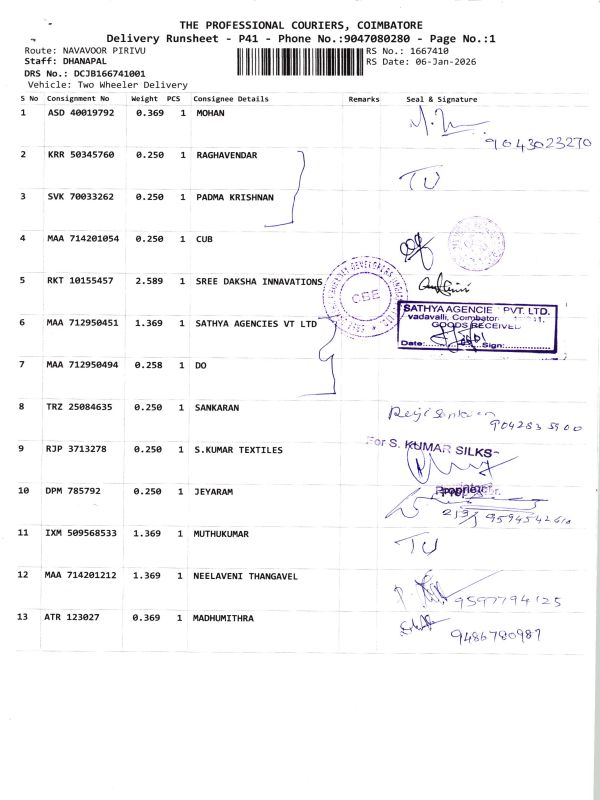 THE PROFESSIONAL COURIERS, COIMBATORE
Delivery Runsheet - P41 - Phone No.:9047080280 - Page No.:1
Route: NAVAVOOR PIRIVU RS No.: 1667410
Staff: DHANAPAL RS Date: 06-Jan-2026
DRS No.: DCJB166741001
Vehicle: Two Wheeler Delivery
S No Consignment No Weight PCS Consignee Details Remarks Seal & Signature
1 ASD 40019792 0.369 1 MOHAN
9043023270
2 KRR 50345760 0.250 1 RAGHAVENDAR
TU
3 SVK 70033262 0.250 1 PADMA KRISHNAN
4 MAA 714201054 0.250 1 CUB
5 RKT 10155457 2.589 1 SREE DAKSHA INNAVATIONS
CBE
6 MAA 712950451 1.369 1 SATHYA AGENCIES VT LTD
SATHYA AGENCIE PVT. LTD.
vadavalli, Coimbator
GOODS RECEIVED
Date: Sign:
7 MAA 712950494 0.258 1 DO
8 TRZ 25084635 0.250 1 SANKARAN
9 RJP 3713278 0.250 1 S.KUMAR TEXTILES
For S. KUMAR SILKS
Proprietor.
10 DPM 785792 0.250 1 JEYARAM
11 IXM 509568533 1.369 1 MUTHUKUMAR
TU
12 MAA 714201212 1.369 1 NEELAVENI THANGAVEL
9597794125
13 ATR 123027 0.369 1 MADHUMITHRA
9486780987